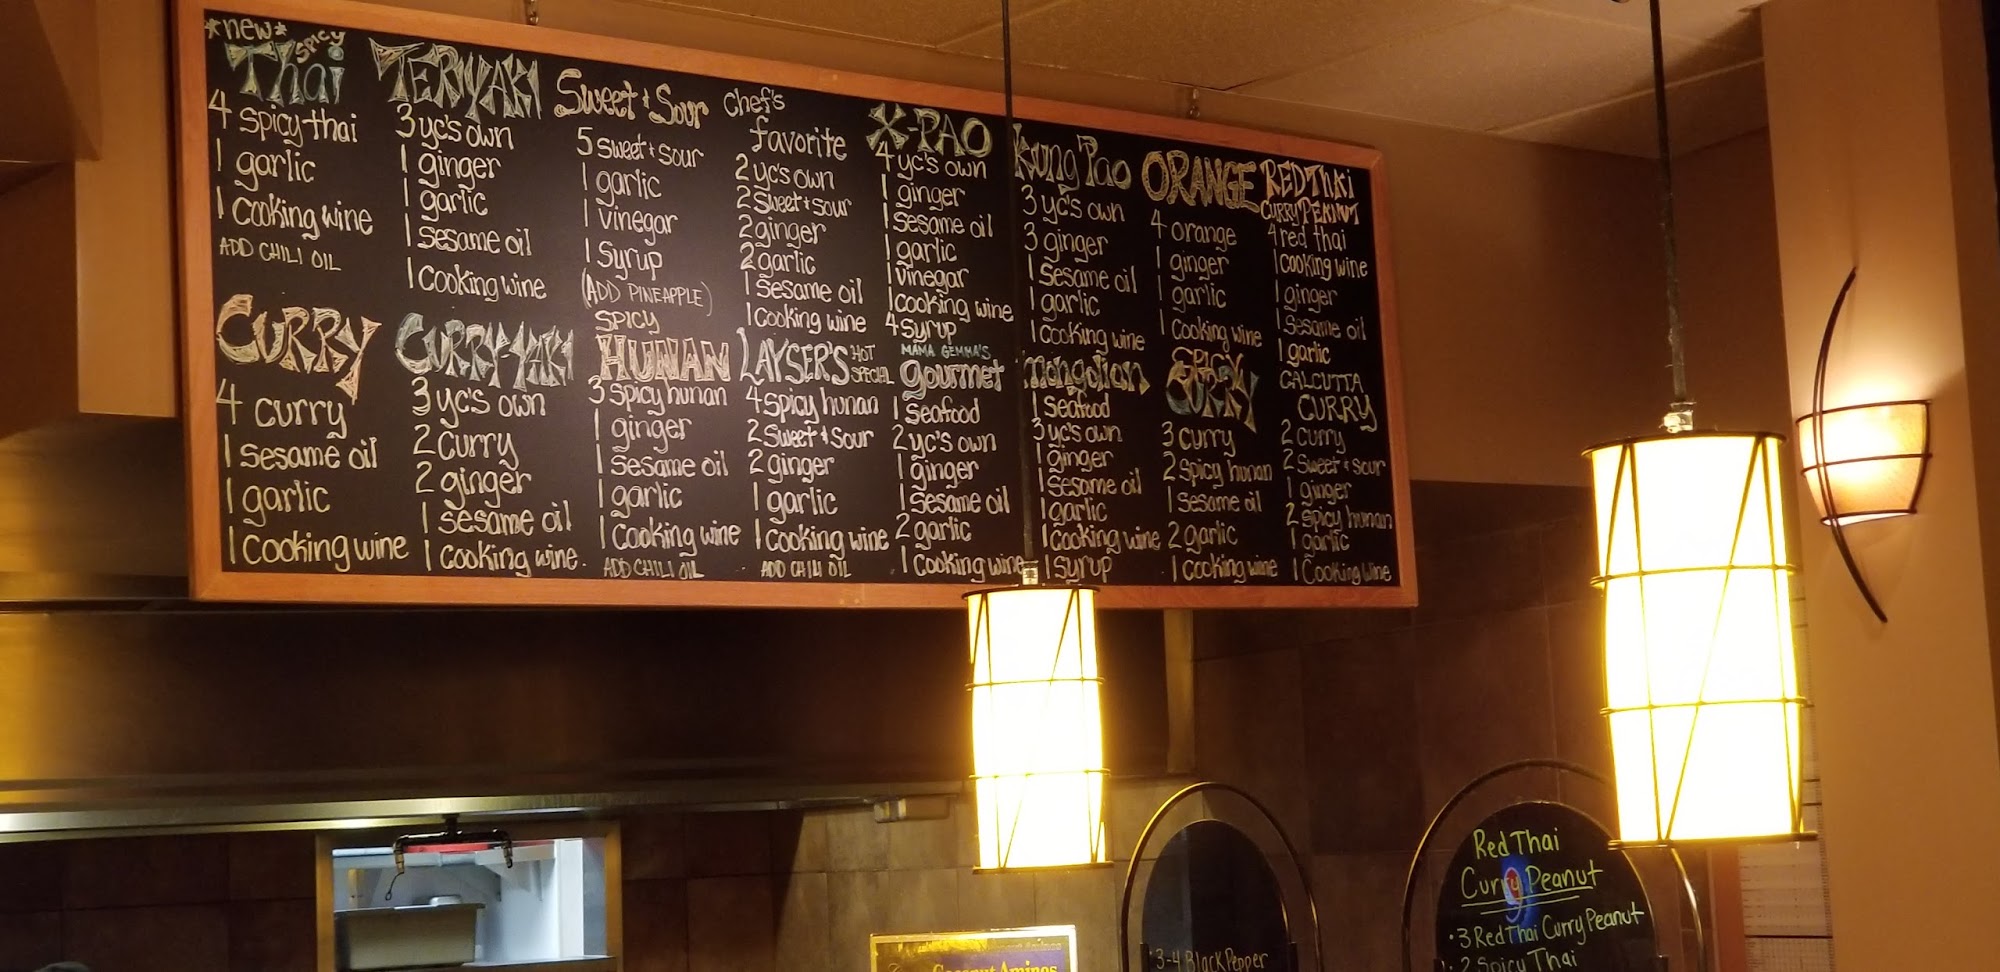 *new*
Thai SPICY
4 spicy thai
1 garlic
1 cooking wine
ADD CHILI OIL
TERIYAKI
3 yc's own
1 ginger
1 garlic
1 sesame oil
1 cooking wine
Sweet & Sour
5 sweet & sour
1 garlic
1 vinegar
1 syrup
(ADD PINEAPPLE)
Chef's
favorite
2 yc's own
2 sweet & sour
2 ginger
2 garlic
1 sesame oil
1 cooking wine
X-PAO
4 yc's own
1 ginger
1 sesame oil
1 garlic
1 vinegar
1 cooking wine
4 syrup
Kung Pao
3 yc's own
3 ginger
1 sesame oil
1 garlic
1 cooking wine
ORANGE
4 orange
1 ginger
1 garlic
1 cooking wine
RED THAI
CURRY PEANUT
4 red thai
1 cooking wine
1 ginger
1 sesame oil
1 garlic
CURRY
4 curry
1 sesame oil
1 garlic
1 cooking wine
CURRY-YAKI
3 yc's own
2 curry
2 ginger
1 sesame oil
1 cooking wine.
SPICY
HUNAN
3 spicy hunan
1 ginger
1 sesame oil
1 garlic
1 cooking wine
ADD CHILI OIL
LAYSER'S HOT SPECIAL
4 spicy hunan
2 sweet & sour
2 ginger
1 garlic
1 cooking wine
ADD CHILI OIL
MAMA GEMMA'S
gourmet
1 seafood
2 yc's own
1 ginger
1 sesame oil
2 garlic
1 cooking wine
mongolian
1 seafood
3 yc's own
1 ginger
1 sesame oil
1 garlic
1 cooking wine
1 syrup
SPICY
CURRY
3 curry
2 spicy hunan
1 sesame oil
2 garlic
1 cooking wine
CALCUTTA
CURRY
2 curry
2 sweet & sour
1 ginger
2 spicy hunan
1 garlic
1 cooking wine
Coconut Aminos
·3-4 Black Pepper
Red Thai
Curry Peanut
·3 Red Thai Curry Peanut
·2 Spicy Thai